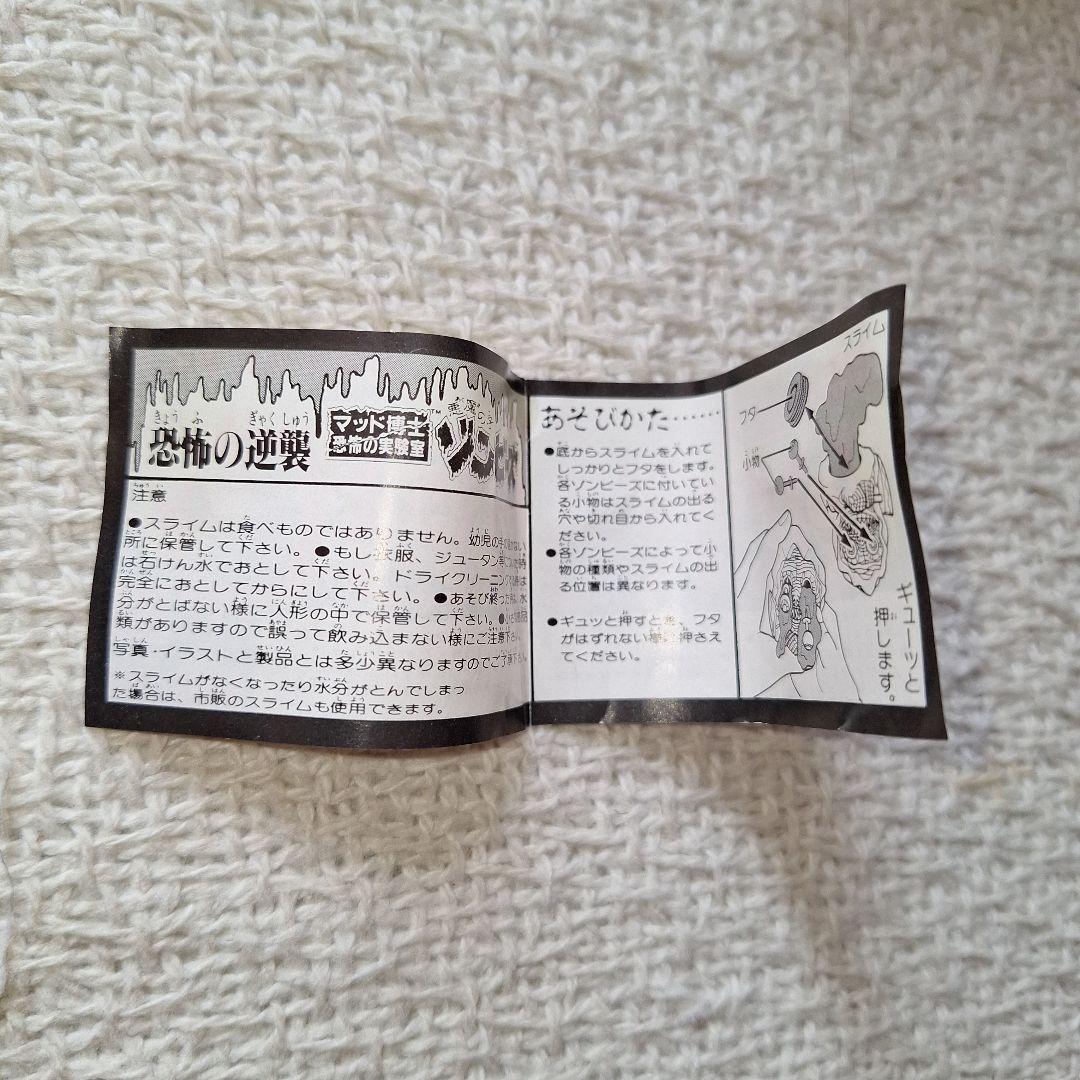 きょう ふ ぎゃくしゅう
恐怖の逆襲
マッド博士™
恐怖の実験室
ちゅうい
注意
●スライムは食べものではありません。幼児の手の
所に保管して下さい。●もし衣服、ジュータン
は石けん水でおとして下さい。ドライクリーニング
完全におとしてからにして下さい。●あそび終った
分がとばない様に人形の中で保管して下さい。
類がありますので誤って飲み込まない様にご注意下さい。
写真・イラストと製品とは多少異なりますのでご了承下さい。
※スライムがなくなったり水分がとんでしまっ
た場合は、市販のスライムも使用できます。
あそびかた……
●底からスライムを入れて
しっかりとフタをします。
各ゾンビーズに付いてい
る小物はスライムの出る
穴や切れ目から入れてく
ださい。
●各ゾンビーズによって小
物の種類やスライムの出
る位置は異なります。
●ギュッと押すと
、フタ
がはずれない様に押さえ
てください。
スライム
フタ
小物
ギューッと
押します。